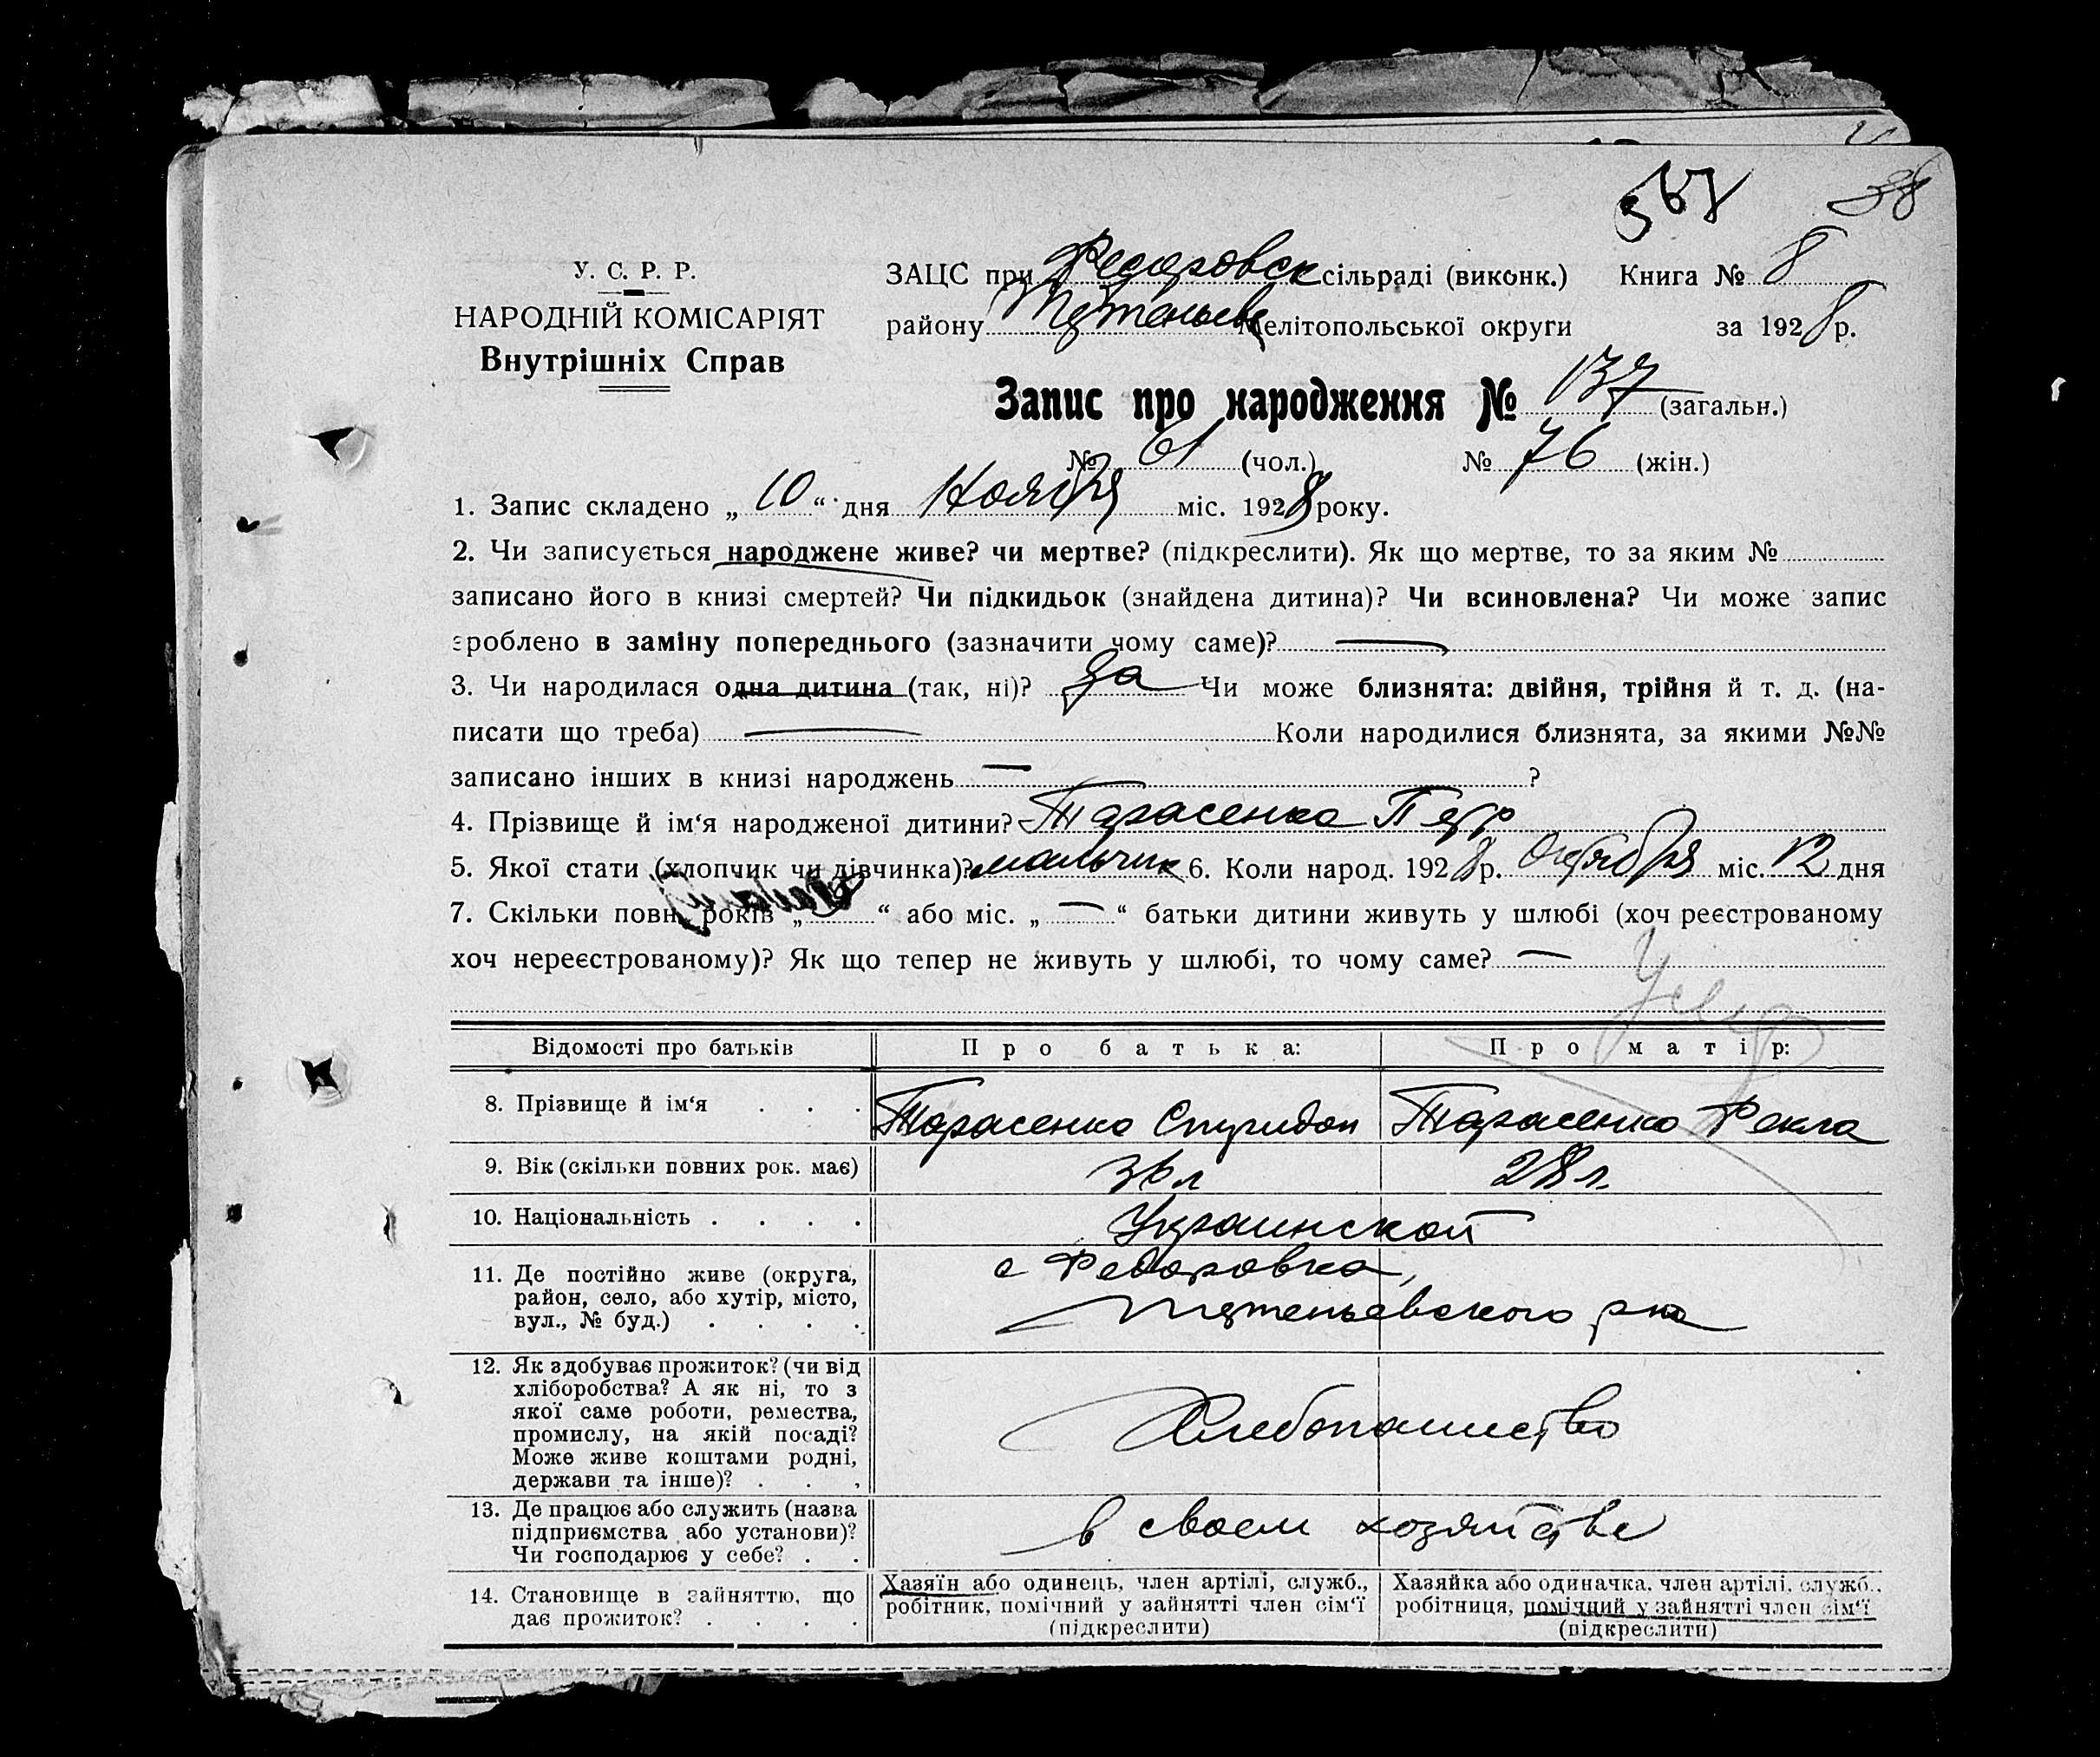 567 38
У. С. Р. Р.
НАРОДНІЙ КОМІСАРІЯТ
Внутрішніх Справ
ЗАЦС при Федоровск сільраді (виконк.) Книга № 8
району Мелітопольської округи за 1928 р.
Запис про народження № 137 (загальн.)
№ 61 (чол.) № 76 (жін.)
1. Запис складено „ 10 “ дня Ноября міс. 1928 року.
2. Чи записується народжене живе? чи мертве? (підкреслити). Як що мертве, то за яким №
записано його в книзі смертей? Чи підкидьок (знайдена дитина)? Чи всиновлена? Чи може запис
зроблено в заміну попереднього (зазначити чому саме)? —
3. Чи народилася одна дитина (так, ні)? да Чи може близнята: двійня, трійня й т. д. (на-
писати що треба) — Коли народилися близнята, за якими №№
записано інших в книзі народжень — ?
4. Прізвище й ім‘я народженої дитини? Тарасенко Петр
5. Якої стати (хлопчик чи дівчинка)? мальчик 6. Коли народ. 1928 р. Октября міс. 12 дня
7. Скільки повн. років „ “ або міс. „ — “ батьки дитини живуть у шлюбі (хоч реєстрованому
хоч нереєстрованому)? Як що тепер не живуть у шлюбі, то чому саме? —
Відомості про батьків Про батька: Про матір:
8. Прізвище й ім‘я . . . Тарасенко Спиридон Тарасенко Фекла
9. Вік (скільки повних рок. має) 36 л 28 л.
10. Національність . . . . Украинской
11. Де постійно живе (округа,
район, село, або хутір, місто,
вул., № буд.) . . . .
с Федоровка,
рна
12. Як здобуває прожиток? (чи від
хліборобства? А як ні, то з
якої саме роботи, ремества,
промислу, на якій посаді?
Може живе коштами родні,
держави та інше)? . . .
Хлебопашество
13. Де працює або служить (назва
підприємства або установи)?
Чи господарює у себе? . .
в своем хозяйстве
14. Становище в зайняттю, що
дає прожиток? . . . .
Хазяїн або одинець, член артілі, служб.,
робітник, помічний у зайнятті член сім‘ї
(підкреслити)
Хазяйка або одиначка, член артілі, служб.,
робітниця, помічний у зайнятті член сім‘ї
(підкреслити)